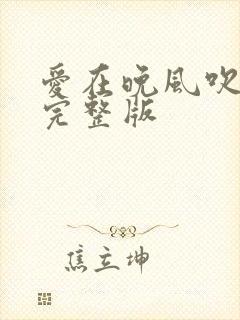 爱在晚风吹
完整版
焦立坤